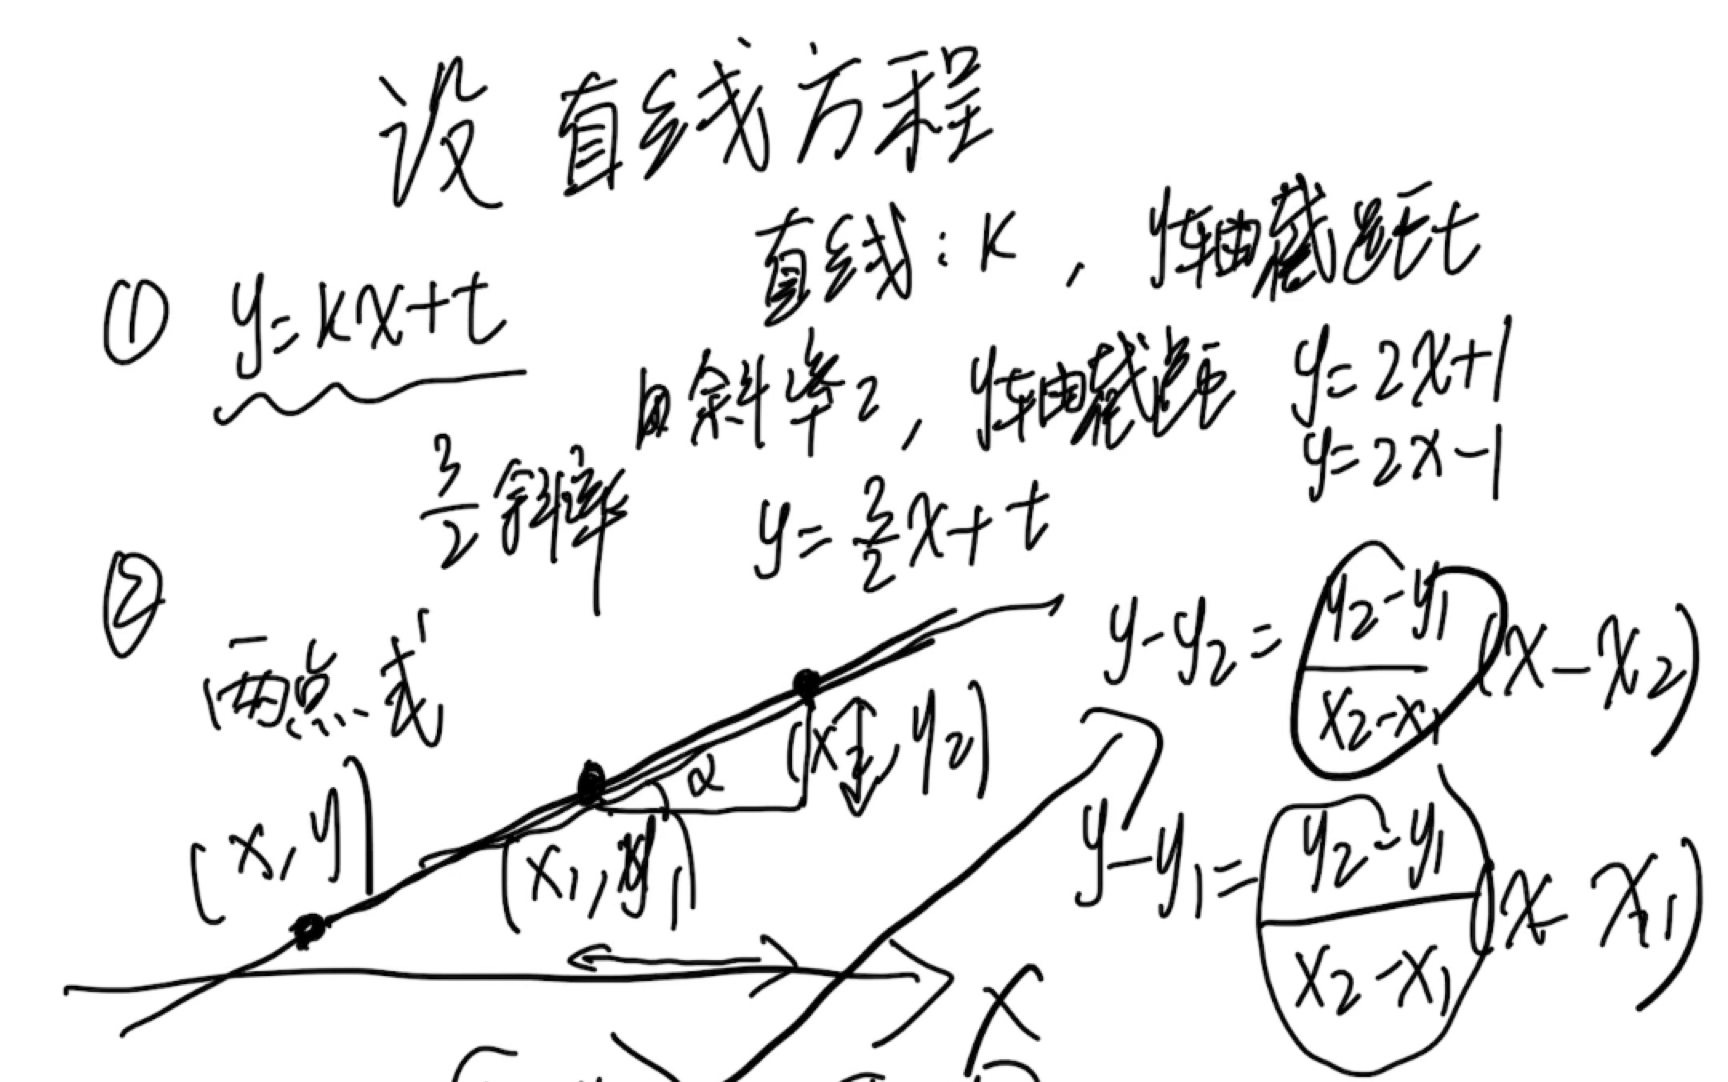 设 直线方程
直线：k，y轴截距t
① y=kx+t
斜率2，y轴截距 y=2x+1
y=2x-1
3/2 斜率 y=3/2 x+t
②
两点式
y-y₂=(y₂-y₁)/(x₂-x₁)(x-x₂)
(x₂,y₂)
α
(x,y)
(x₁,y₁)
y-y₁=(y₂-y₁)/(x₂-x₁)(x-x₁)
x